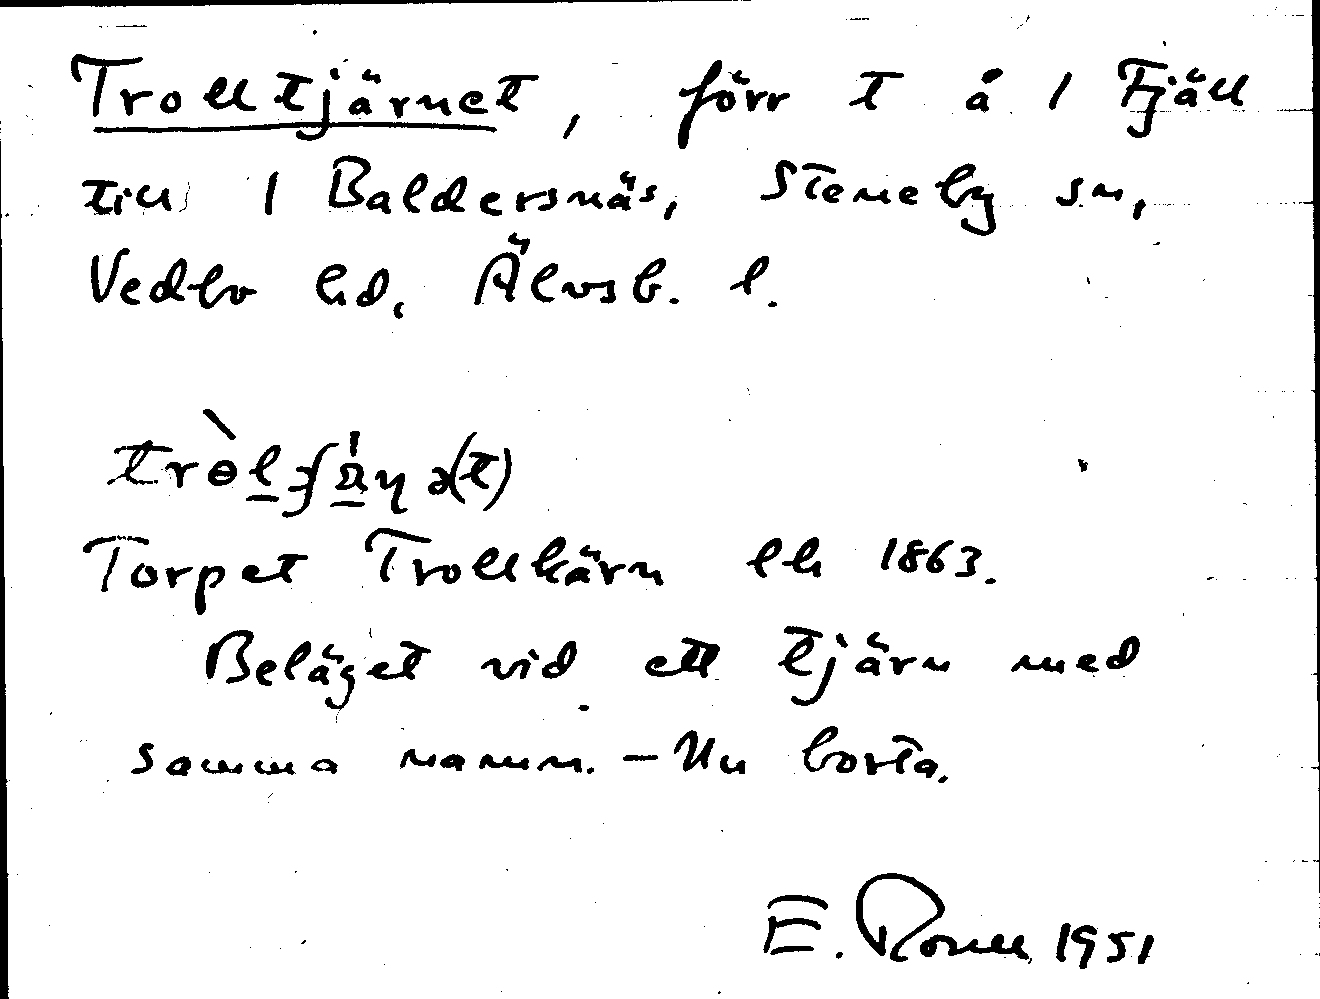 Trolltjärnet, förr t å 1 Fjäll
till 1 Baldersnäs, Steneby sn,
Vedbo hd. Älvsb. l.
Torpet Trollkärn lh 1863.
Beläget vid ett tjärn med
samma namn. – Nu borta.
E. 1951